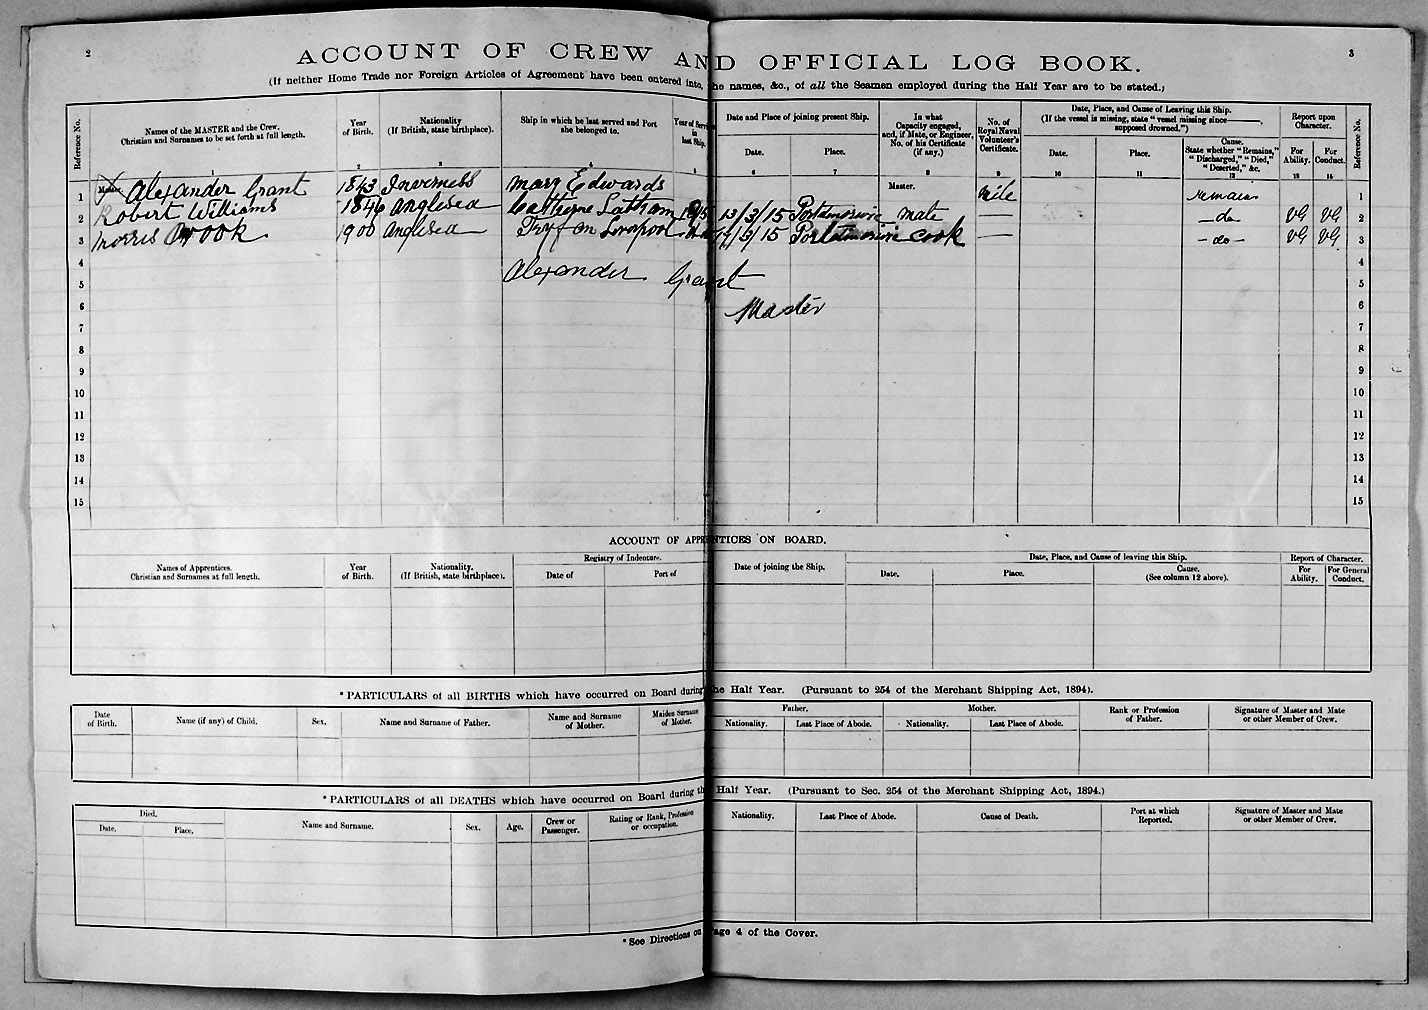 2
3
ACCOUNT OF CREW AND OFFICIAL LOG BOOK.
(If neither Home Trade nor Foreign Articles of Agreement have been entered into, the names, &c., of all the Seamen employed during the Half Year are to be stated.)
Reference No.
Names of the MASTER and the Crew.
Christian and Surnames to be set forth at full length.
1
Year
of Birth.
2
Nationality
(If British, state birthplace).
3
Ship in which he last served and Port
she belonged to.
4
Year of Service
in
last Ship.
5
Date and Place of joining present Ship.
Date.
6
Place.
7
In what
Capacity engaged,
and, if Mate, or Engineer,
No. of his Certificate
(if any.)
8
No. of
Royal Naval
Volunteer's
Certificate.
9
Date, Place, and Cause of Leaving this Ship.
(If the vessel is missing, state "vessel missing since———,
supposed drowned.")
Date.
10
Place.
11
Cause.
State whether "Remains,"
"Discharged," "Died,"
"Deserted," &c.
12
Report upon
Character.
For
Ability.
13
For
Conduct.
14
Reference No.
1 Master. Alexander Grant 1843 Inverness Mary Edwards Master. Nile remain 1
2 Robert Williams 1846 Anglisea Latham 1915 13/3/15 mate — — do VG VG 2
3 Morris 1900 Anglisea Liverpool /15 cook — — do — VG VG 3
4 4
Alexander Grant
5 5
Master
6 6
7 7
8 8
9 9
10 10
11 11
12 12
13 13
14 14
15 15
ACCOUNT OF APPRENTICES ON BOARD.
Names of Apprentices.
Christian and Surnames at full length.
Year
of Birth.
Nationality.
(If British, state birthplace).
Registry of Indenture.
Date of
Port of
Date of joining the Ship.
Date, Place, and Cause of leaving this Ship.
Date.
Place.
Cause.
(See column 12 above).
Report of Character.
For
Ability.
For General
Conduct.
*PARTICULARS of all BIRTHS which have occurred on Board during the Half Year. (Pursuant to 254 of the Merchant Shipping Act, 1894).
Date
of Birth.
Name (if any) of Child.
Sex.
Name and Surname of Father.
Name and Surname
of Mother.
Maiden Surname
of Mother.
Father.
Nationality.
Last Place of Abode.
Mother.
Nationality.
Last Place of Abode.
Rank or Profession
of Father.
Signature of Master and Mate
or other Member of Crew.
*PARTICULARS of all DEATHS which have occurred on Board during the Half Year. (Pursuant to Sec. 254 of the Merchant Shipping Act, 1894.)
Died.
Date.
Place.
Name and Surname.
Sex.
Age.
Crew or
Passenger.
Rating or Rank, Profession
or occupation.
Nationality.
Last Place of Abode.
Cause of Death.
Port at which
Reported.
Signature of Master and Mate
or other Member of Crew.
*See Directions on Page 4 of the Cover.